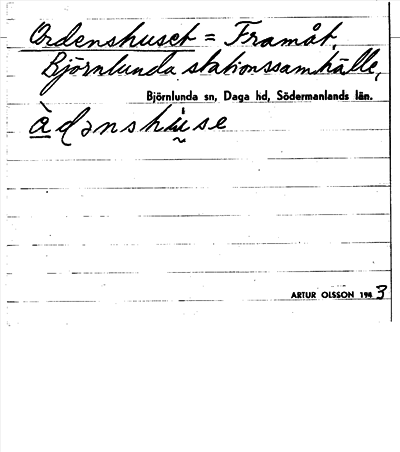 Ordenshuset = Framåt,
Björnlunda stationssamhälle,
Björnlunda sn, Daga hd, Södermanlands län.
àdənshu̇se
ARTUR OLSSON 1943